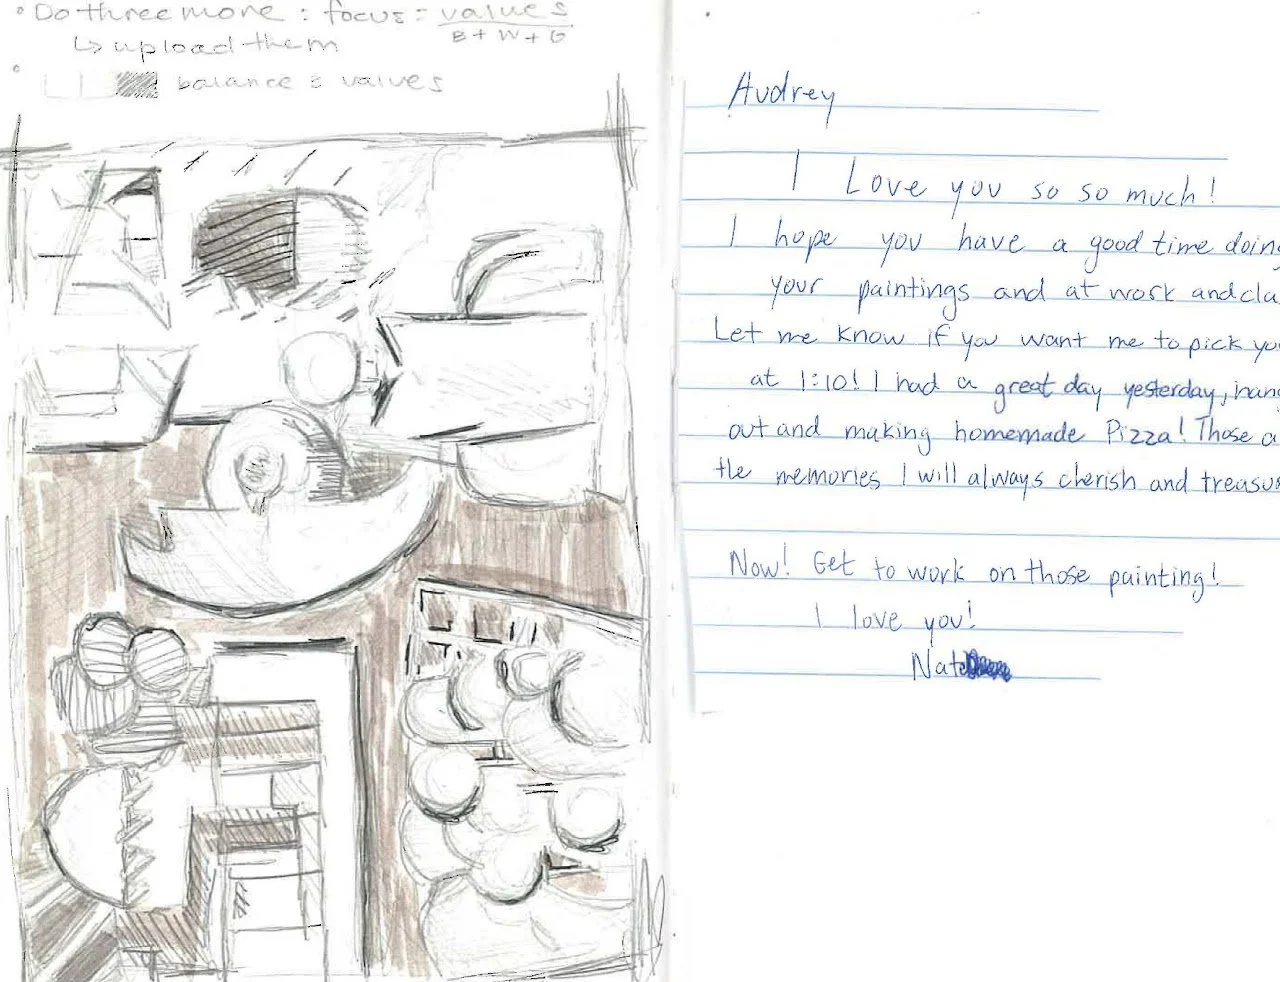 • Do three more : focus = values
B + W + G
↳ upload them
• balance = values
Audrey
I Love you so so much!
I hope you have a good time doing
your paintings and at work and cla
Let me know if you want me to pick yo
at 1:10! I had a great day yesterday, hang
out and making homemade Pizza! Those a
the memories I will always cherish and treasu
Now! Get to work on those painting!
I love you!
Nat